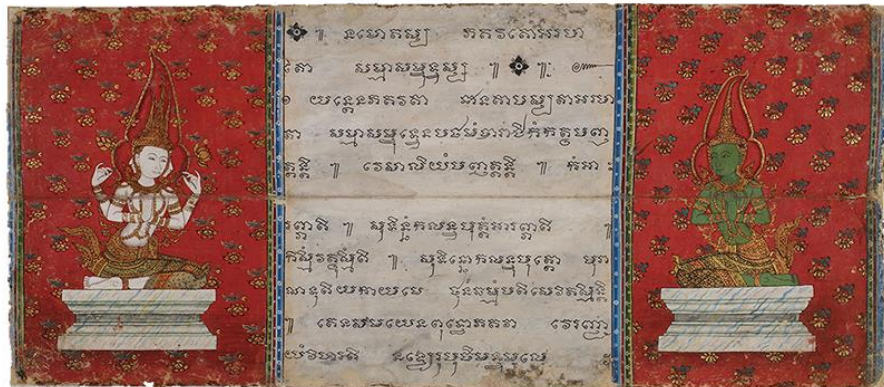 ៚ នមោតស្ស ភគវតោអរហ
តោ សម្មាសម្ពុទ្ធស្ស ៚ ៚
យន្តេនភគវតា ជានតាបស្សតាអរហ
តា សម្មាសម្ពុទ្ធេនបឋមំបារាជិកំកត្ថបញ្ញ
ត្តន្តិ ៚ វេសាលិយំបញ្ញត្តន្តិ ៚ កំអា
រព្ភាតិ ៚ សុទិន្នំកលន្ទបុត្តំអារព្ភាតិ ៚
កិស្មិំវត្ថុស្មិំតិ ៚ សុទិន្នោកលន្ទបុត្តោ បុរា
ណទុតិយកាយមេ ថុនំធម្មំបតិសេវិ
៚ តេនសមយេនពុទ្ធោភគវា វេរញ្ជា
យំវិហរតិ នឡេរុបុចិមន្ទមូលេ